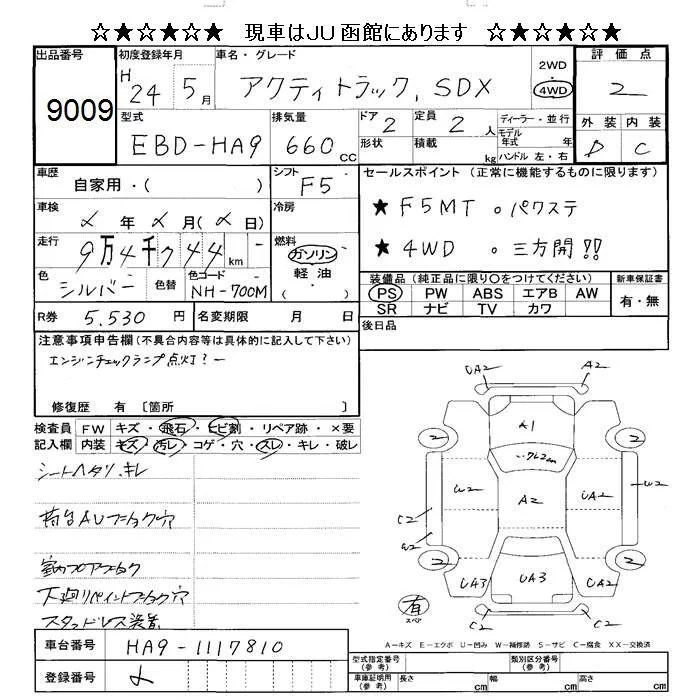 ☆★☆★☆★ 現車はJU函館にあります ☆★☆★☆★
出品番号 9009
初度登録年月 H 24 5月
車名・グレード アクティトラック, SDX
2WD 4WD
評価点 2
型式 EBD-HA9
排気量 660 CC
ドア 2
形状
定員 2 人
積載 kg
ディーラー・並行
モデル年式 年
ハンドル 左・右
外装 内装
D C
車歴 自家用・( )
シフト F5
セールスポイント (正常に機能するものに限ります)
★ F5MT 。パワステ
★ 4WD 。三方開!!
車検 年 月 ( 日)
冷房
走行 9万4千744 km
燃料 ガソリン 軽油 ・( )
色 シルバー 色替
色コード NH-700M
装備品 (純正品に限り〇をつけてください)
PS PW ABS エアB AW
SR ナビ TV カワ
新車保証書 有・無
R券 5.530 円
名変期限 月 日
後日品
注意事項申告欄 (不具合内容等は具体的に記入して下さい)
エンジンチェックランプ点灯?
修復歴 有 〔箇所 〕
検査員記入欄
FW キズ・飛石・ヒビ割・リペア跡・×要
内装 キズ・汚レ・コゲ・穴・スレ・キレ・破レ
シートヘタリ、キレ
荷台AUフ
下廻リペイント
スタッドレス装着
UA2 A2
2 A1 2
W2 A2 UA2 W2
C2
W2
2 UA3 UA3 UA3 2
有 スペア
C2 C2
A-キズ E-エクボ U-凹み W-補修跡 S-サビ C-腐食 XX-交換済
車台番号 HA9-1117810
登録番号
型式指定番号 (参考)
類別区分番号 (参考)
車庫証明用 (参考) 長さ cm 幅 cm 高さ cm